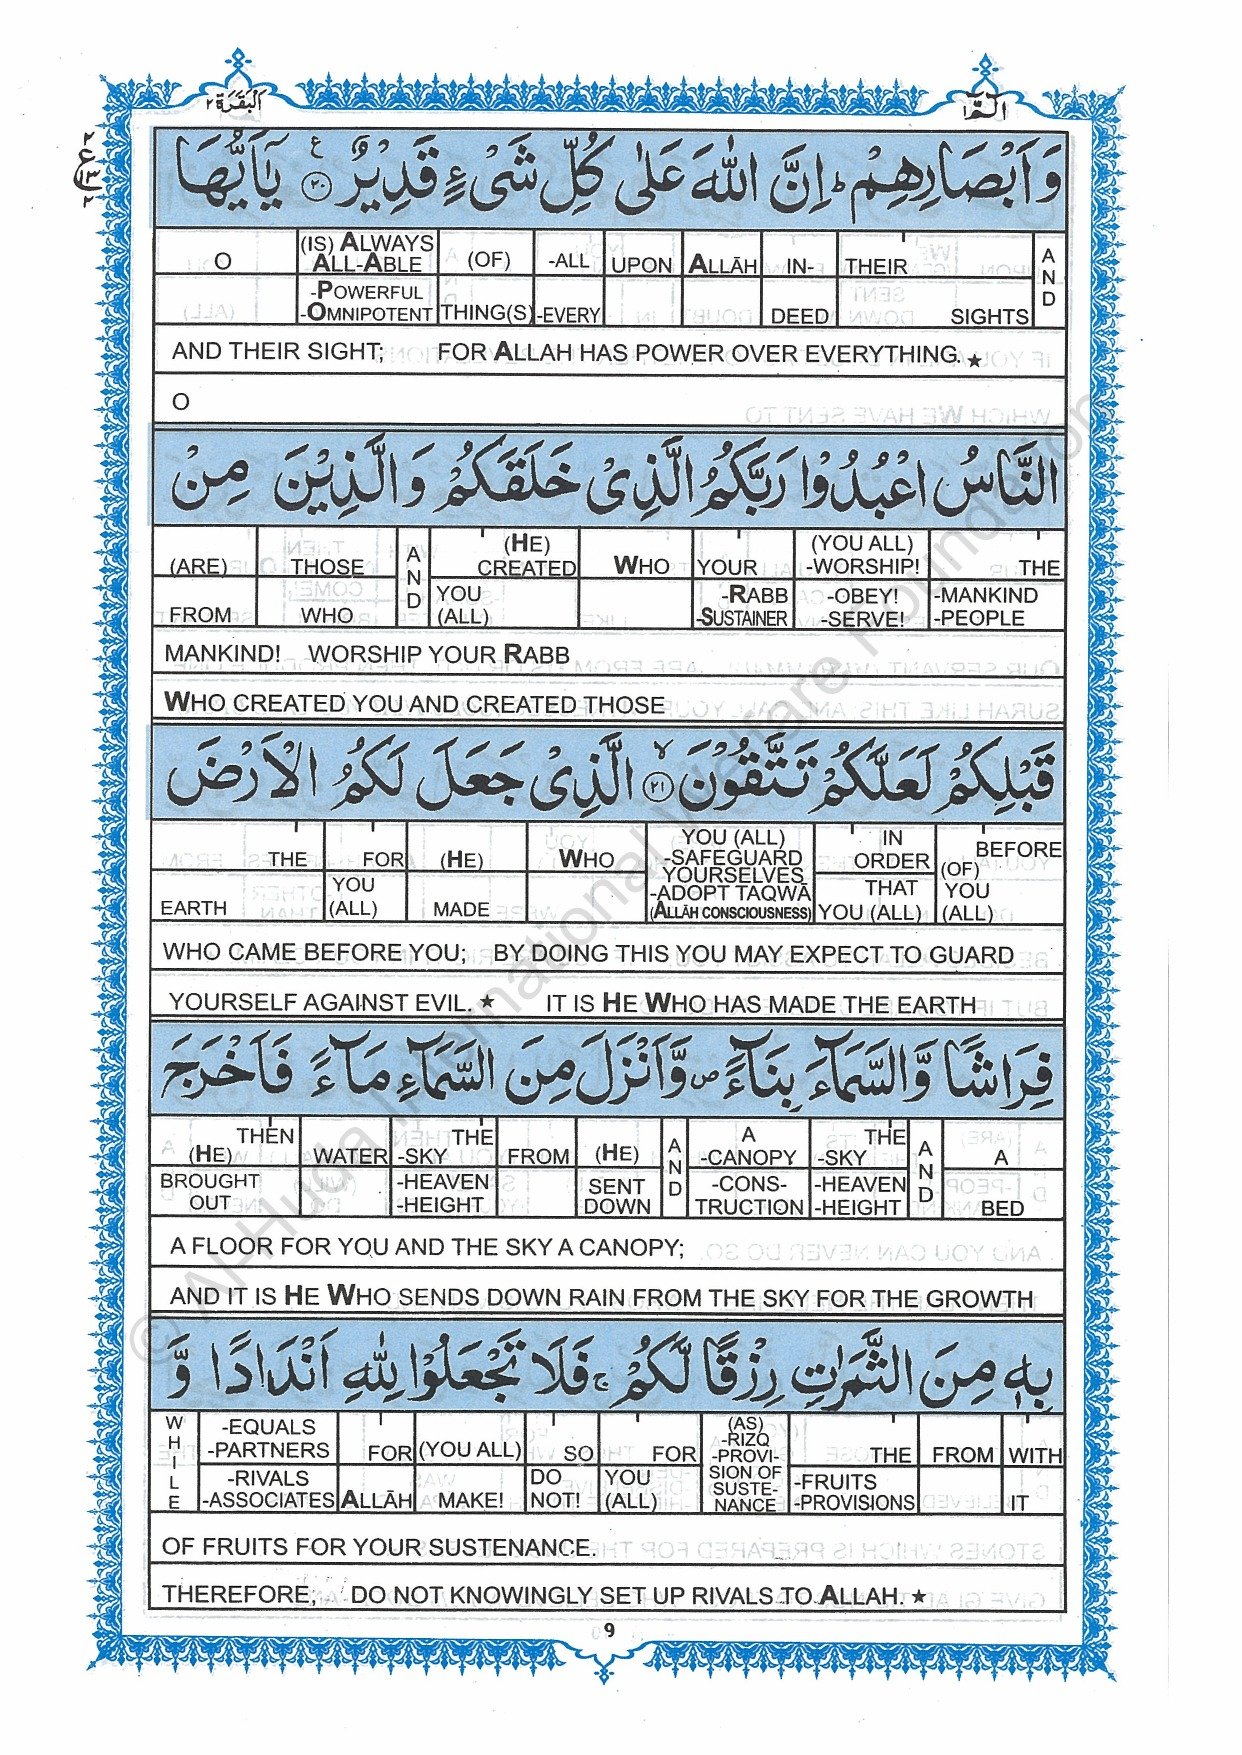 البقرة ٢
الٓمّٓ ١
٢
ع
١٣
٢
وَ اَبْصَارِهِمْ ؕ اِنَّ اللّٰهَ عَلٰى كُلِّ شَیْءٍ قَدِیْرٌ ۟۠ ٢٠ یٰۤاَیُّهَا
O | (IS) ALWAYS ALL-ABLE -POWERFUL -OMNIPOTENT | (OF) THING(S) | -ALL -EVERY | UPON | ALLĀH | IN-DEED | THEIR SIGHTS | AND
AND THEIR SIGHT; FOR ALLAH HAS POWER OVER EVERYTHING. ★
O
النَّاسُ اعْبُدُوْا رَبَّكُمُ الَّذِیْ خَلَقَكُمْ وَ الَّذِیْنَ مِنْ
(ARE) FROM | THOSE WHO | AND | (HE) CREATED YOU (ALL) | WHO | YOUR -RABB -SUSTAINER | (YOU ALL) -WORSHIP! -OBEY! -SERVE! | THE -MANKIND -PEOPLE
MANKIND! WORSHIP YOUR RABB
WHO CREATED YOU AND CREATED THOSE
قَبْلِكُمْ لَعَلَّكُمْ تَتَّقُوْنَ ۙ ٢١ الَّذِیْ جَعَلَ لَكُمُ الْاَرْضَ
THE EARTH | FOR YOU (ALL) | (HE) MADE | WHO | YOU (ALL) -SAFEGUARD YOURSELVES -ADOPT TAQWĀ (ALLĀH CONSCIOUSNESS) | IN ORDER THAT YOU (ALL) | BEFORE (OF) YOU (ALL)
WHO CAME BEFORE YOU; BY DOING THIS YOU MAY EXPECT TO GUARD
YOURSELF AGAINST EVIL. ★ IT IS HE WHO HAS MADE THE EARTH
فِرَاشًا وَّ السَّمَآءَ بِنَآءً ۪ وَّ اَنْزَلَ مِنَ السَّمَآءِ مَآءً فَاَخْرَجَ
THEN (HE) BROUGHT OUT | WATER | THE -SKY -HEAVEN -HEIGHT | FROM | (HE) SENT DOWN | AND | A -CANOPY -CONS-TRUCTION | THE -SKY -HEAVEN -HEIGHT | AND | A BED
A FLOOR FOR YOU AND THE SKY A CANOPY;
AND IT IS HE WHO SENDS DOWN RAIN FROM THE SKY FOR THE GROWTH
بِهٖ مِنَ الثَّمَرٰتِ رِزْقًا لَّكُمْ ۚ فَلَا تَجْعَلُوْا لِلّٰهِ اَنْدَادًا وَّ
WHILE | -EQUALS -PARTNERS -RIVALS -ASSOCIATES | FOR ALLĀH | (YOU ALL) MAKE! | SO DO NOT! | FOR YOU (ALL) | (AS) -RIZQ -PROVI-SION OF SUSTE-NANCE | THE -FRUITS -PROVISIONS | FROM | WITH IT
OF FRUITS FOR YOUR SUSTENANCE.
THEREFORE, DO NOT KNOWINGLY SET UP RIVALS TO ALLAH. ★
9
© Al-Huda International Welfare Foundation